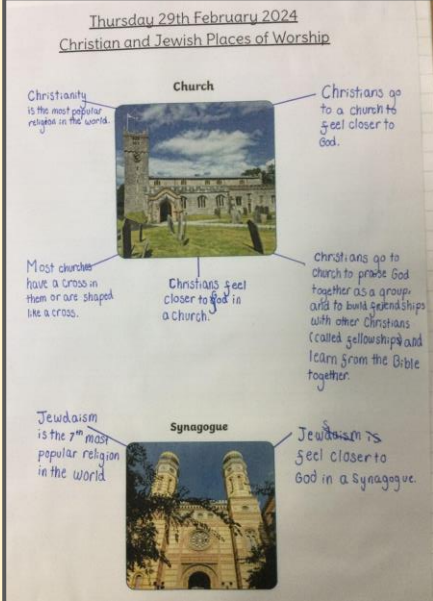 Thursday 29th February 2024
Christian and Jewish Places of Worship
Church
Christianity
is the most popular
religion in the world.
Christians go
to a church to
feel closer to
God.
Most churches
have a cross in
them or are shaped
like a cross.
Christians feel
closer to God in
a church.
Christians go to
church to praise God
together as a group,
and to build friendships
with other Christians
(called fellowships) and
learn from the Bible
together.
Synagogue
Jewdaism
is the 7th most
popular religion
in the world
Jews
feel closer to
God in a Synagogue.